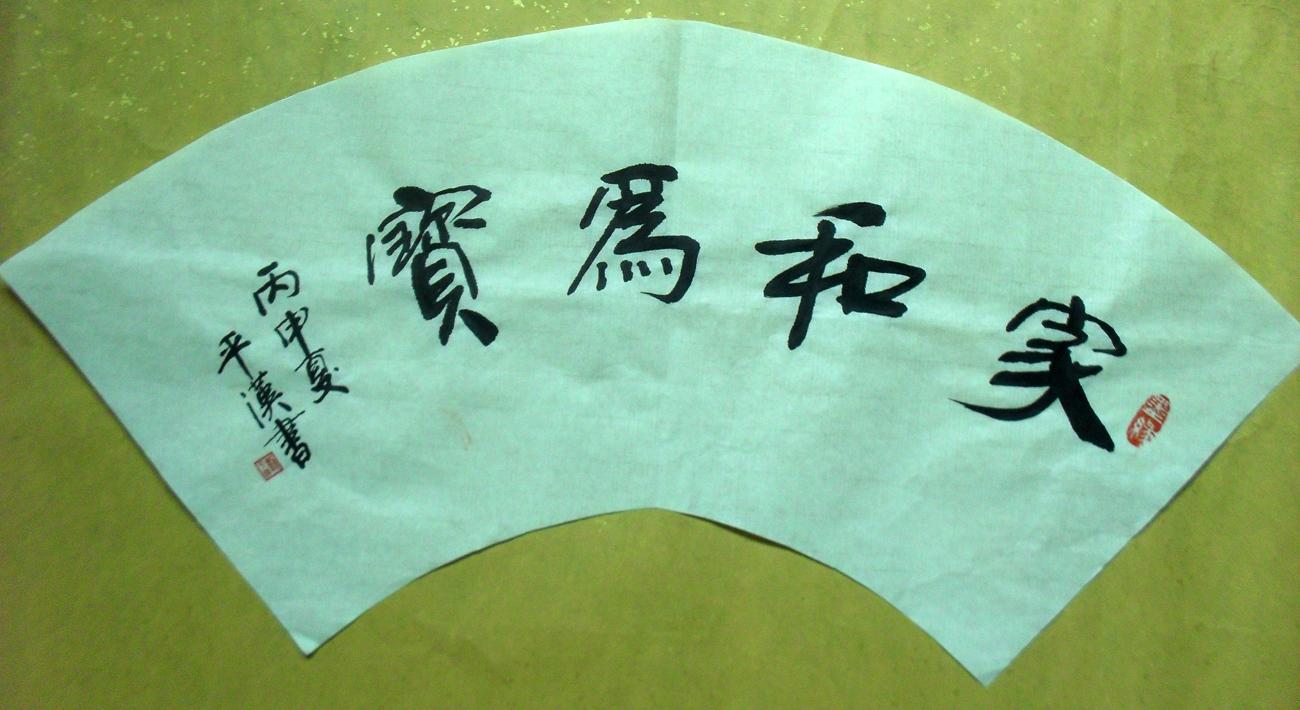 家和為寶
丙申夏
平漢書